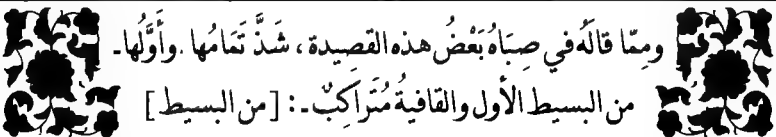 ومِمّا قالَهُ في صِبَاهُ بَعْضُ هذه القصيدة ، شَذَّ تَمَامُها . وأَوَّلُها ـ
من البسيط الأول والقافيةُ مُتَراكِبٌ ـ : [ من البسيط ]